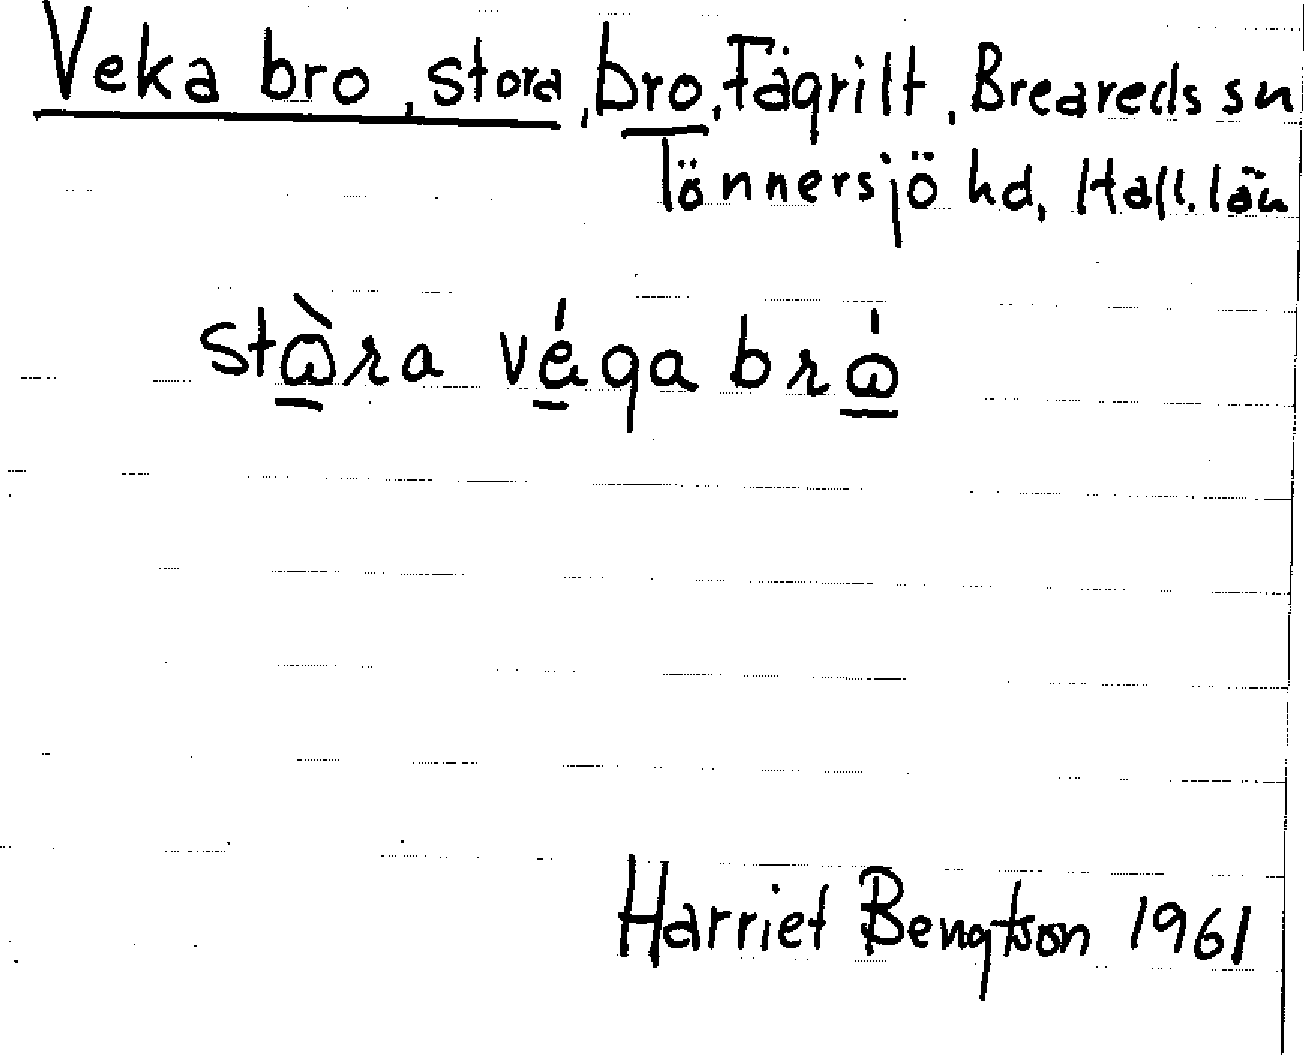 Veka bro, stora, bro, Fägrilt, Breareds sn
Tönnersjö hd, Hall. län
stòra véga bró
Harriet Bengtson 1961